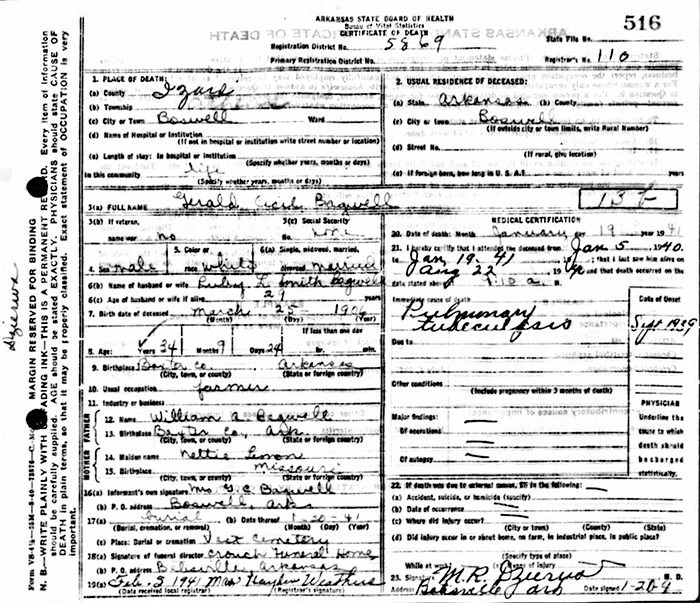 ARKANSAS STATE BOARD OF HEALTH
Bureau of Vital Statistics
CERTIFICATE OF DEATH
516
Registration District No. 5869
State File No.
Primary Registration District No.
Registrar's No. 110
1. PLACE OF DEATH:
(a) County Izard
(b) Township
(c) City or Town Boswell Ward
(d) Name of Hospital or Institution
(If not in hospital or institution write street number or location)
(e) Length of stay: In hospital or institution
(Specify whether years, months or days)
In this community life
(Specify whether years, months or days)
2. USUAL RESIDENCE OF DECEASED:
(a) State Arkansas (b) County
(c) City or town Boswell
(If outside city or town limits, write Rural Number)
(d) Street No.
(If rural, give location)
(e) If foreign born, how long in U. S. A.?
3(a) FULL NAME Gerald Cecil Bagwell
13 b
3(b) If veteran, name war no
3(c) Social Security No. none
4. Sex male
5. Color or race white
6(a) Single, widowed, married, divorced married
6(b) Name of husband or wife Ruby L. Smith Bagwell
6(c) Age of husband or wife if alive 29 years
7. Birth date of deceased March 25 1906
(Month) (Day) (Year)
If less than one day
8. Age: Years 34 Months 9 Days 24 hr. min.
9. Birthplace Baxter Co. Arkansas
(City, town, county) (State or foreign country)
10. Usual occupation farmer
11. Industry or business
FATHER
12. Name William A. Bagwell
13. Birthplace Baxter Co, Ark.
(City, town, county) (State or foreign country)
MOTHER
14. Maiden name Nettie Lemon
15. Birthplace Missouri
(City, town, or county) (State or foreign country)
16(a) Informant's own signature Mrs G. C. Bagwell
(b) P. O. address Boswell, Ark
17(a) burial (b) Date thereof 1-20-41
(Burial, cremation, or removal) (Month) (Day) (Year)
(c) Place: Burial or cremation Vest Cemetery
18(a) Signature of funeral director Crouch Funeral Home
(b) P. O. address Batesville, Arkansas
19(a) Feb. 5 1941
(Date received local registrar) (Registrar's signature)
MEDICAL CERTIFICATION
20. Date of death: Month January day 19 1941
21. I hereby certify that I attended the deceased from Jan 5 1940.
to Jan 19 - 41 19 ; that I last saw him alive on
Aug 22 19 and that death occurred on the
date stated above at 9:10 a. M.
Immediate cause of death
Date of Onset
Pulmonary tuberculosis
Sept 1939
Due to
Other conditions
(Include pregnancy within 3 months of death)
Major findings:
Of operations
Of autopsy
PHYSICIAN
Underline the cause to which death should be charged statistically.
22. If death was due to external cause, fill in the following:
(a) Accident, suicide, or homicide (specify)
(b) Date of occurrence
(c) Where did injury occur?
(City or town) (County) (State)
(d) Did injury occur in or about home, on farm, in industrial place, in public place?
(Specify type of place)
While at work? (e) Means of injury
23. Signature M. R. M. D.
Address Batesville Ark Date signed 1-20-4
MARGIN RESERVED FOR BINDING
N. B.—WRITE PLAINLY WITH UNFADING INK—THIS IS A PERMANENT RECORD. Every item of information
should be carefully supplied. AGE should be stated EXACTLY. PHYSICIANS should state CAUSE OF
DEATH in plain terms, so that it may be properly classified. Exact statement of OCCUPATION is very
important.